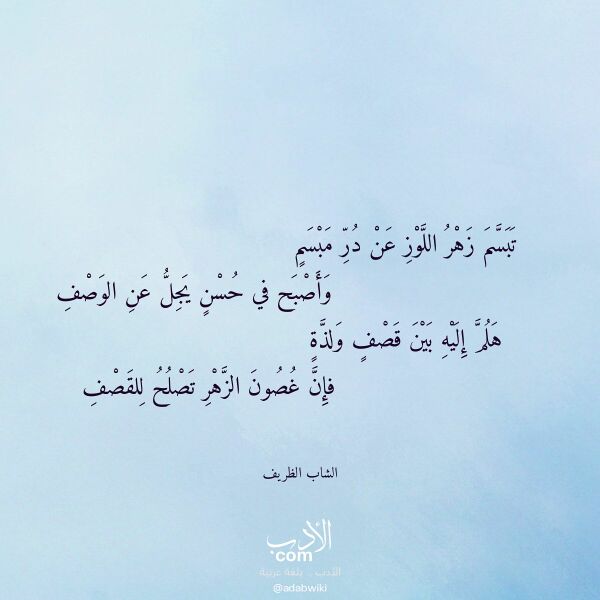 تَبَسَّمَ زَهْرُ اللَّوْزِ عَنْ دُرِّ مَبْسَمٍ
وَأَصْبَح في حُسْنٍ يَجِلُّ عَنِ الوَصْفِ
هَلُمَّ إِلَيْهِ بَيْنَ قَصْفٍ وَلذَّةٍ
فإِنَّ غُصُونَ الزَّهْرِ تَصْلُحُ لِلقَصْفِ
الشاب الظريف
الأدب
com
الأدب .. بلغة عربية
@adabwiki